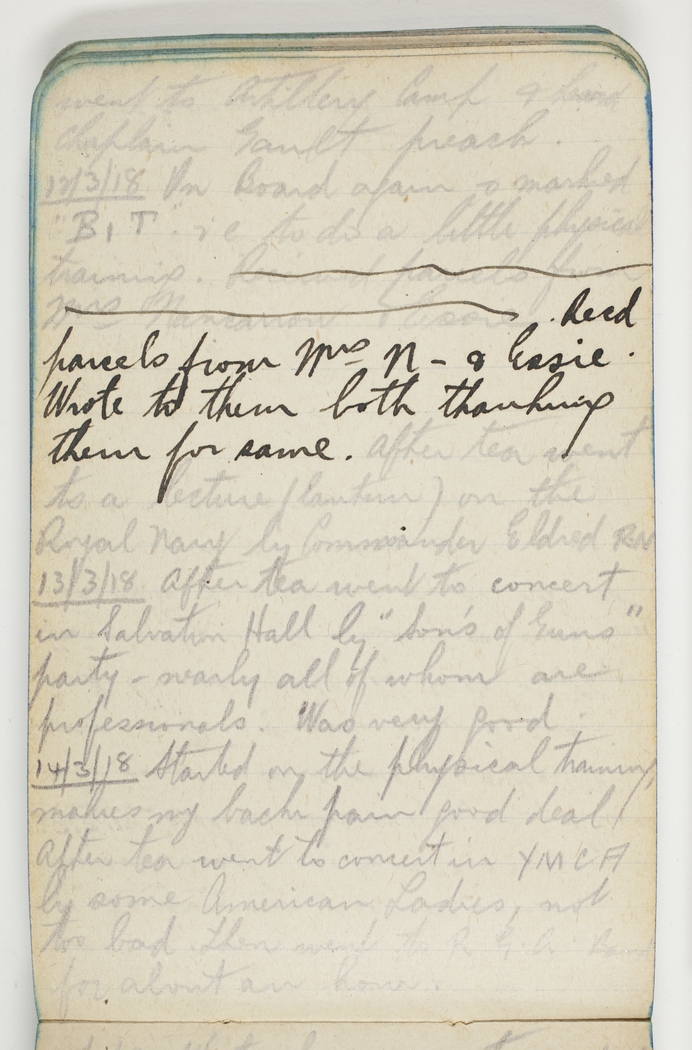 went to Artillery Camp & heard
Chaplain Gault preach.
12/3/18 On Board again & marked
"B, T. i e to do a little physical
training. Received parcels from
Mrs & Essie . Recd
parcels from Mrs N - & Essie.
Wrote to them both thanking
them for same. After tea went
to a lecture (lantern) on the
Royal Navy by Commander Eldred RN
13/3/18 After tea went to concert
in Salvation Hall by "Son's of Guns"
party - nearly all of whom are
professionals. Was very good.
14/3/18 Started on the physical training,
makes my back pain good deal.
After tea went to concert in YMCA
by some American Ladies, not
too bad. Then went to R G A Band
for about an hour.